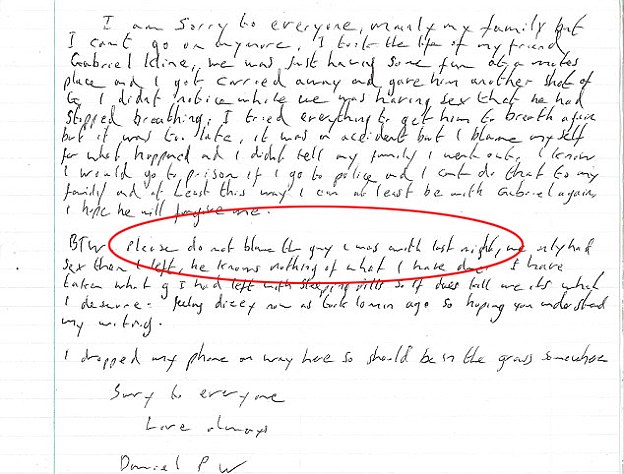 I am Sorry to everyone, mainly my family but
I cant go on anymore, I took the life of my friend
Gabriel Kline, we was just having some fun at a mates
place and I got carried away and gave him another shot of
G I didnt notice while we was having sex that he had
stopped breathing, I tried everything to get him to breath again
but it was to late, it was an accident but I blame my self
for what happened and I didnt tell my family I went out. I know
I would go to prison if I go to police and I cant do that to my
family and at least this way I can at least be with Gabriel again
I hope he will forgive me.
BTW Please do not blame the guy I was with last night, we only had
sex then I left, he knows nothing of what I have done. I have
taken what g I had left with sleeping pills so if it does kill me its what
I deserve. Feeling dizzy now as took 10 min ago so hoping you understand
my writing.
I dropped my phone on way here so should be in the grass somewhere
Sorry to everyone
Love always
Daniel P W